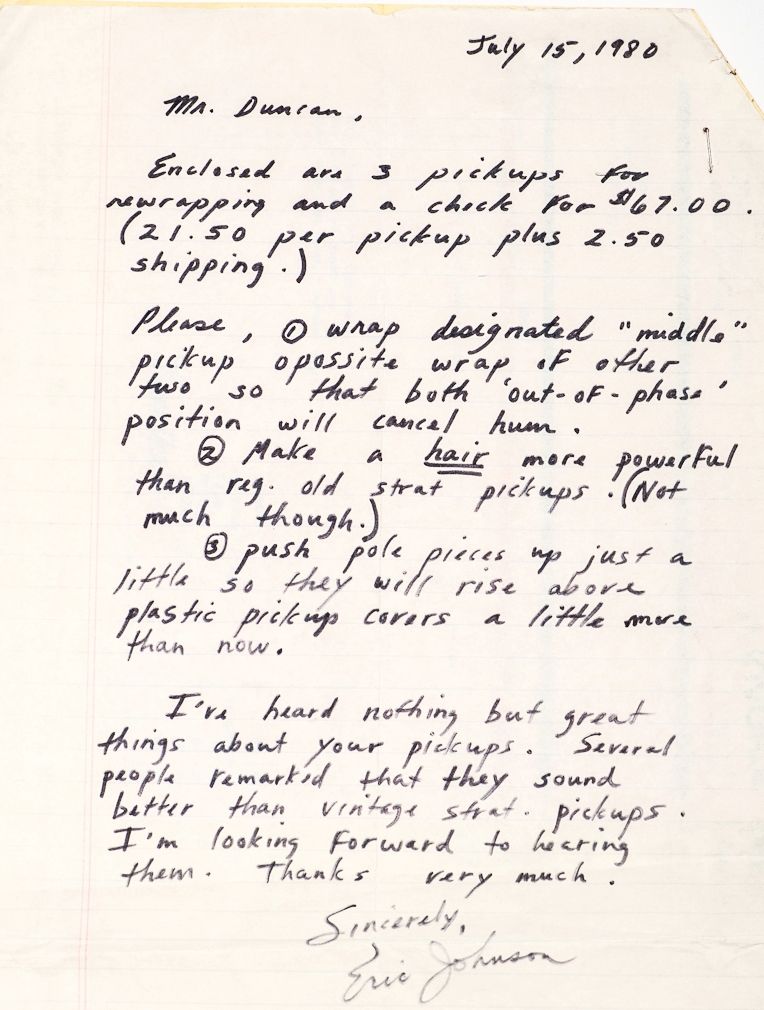 July 15, 1980
Mr. Duncan,
Enclosed are 3 pickups for
rewrapping and a check for $67.00.
(21.50 per pickup plus 2.50
shipping.)
Please, ① wrap designated "middle"
pickup opossite wrap of other
two so that both 'out-of-phase'
position will cancel hum.
② Make a hair more powerful
than reg. old strat pickups. (Not
much though.)
③ push pole pieces up just a
little so they will rise above
plastic pickup covers a little more
than now.
I've heard nothing but great
things about your pickups. Several
people remarked that they sound
better than vintage strat. pickups.
I'm looking forward to hearing
them. Thanks very much.
Sincerely,
Eric Johnson